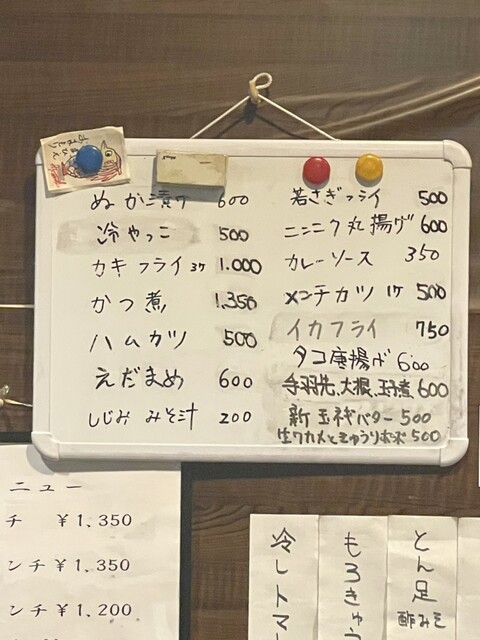 ぬか漬け 600
冷やっこ 500
カキフライ3ケ 1.000
かつ煮 1.350
ハムカツ 500
えだまめ 600
しじみ みそ汁 200
若さぎフライ 500
ニンニク丸揚げ 600
カレーソース 350
メンチカツ 1ケ 500
イカフライ 750
タコ唐揚げ 600
手羽先、大根、玉子煮 600
新玉ネギバター 500
生ワカメときゅうりポン酢 500
ニュー
チ ¥1,350
ンチ ¥1,350
ンチ ¥1,200
冷しトマ
もろきゅう
とん足
酢みそ